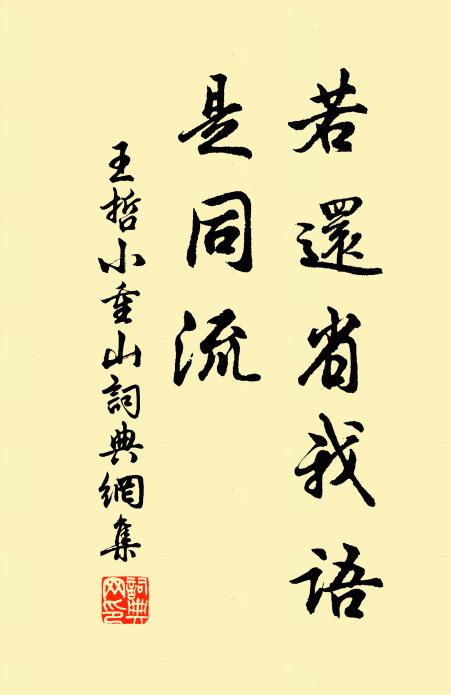 若還省我語
是同流
王哲小重山詞典網集
詞典
网印